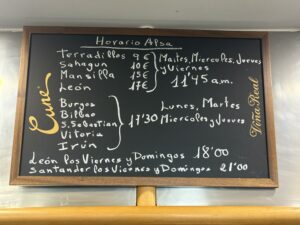 Horario Alsa
Terradillos 9€
Sahagun 10€
Mansilla 15€
León 17€
Martes, Miercoles, Jueves
y Viernes
11'45 a.m.
Burgos
Bilbao
S. Sebastian
Vitoria
Irún
Lunes, Martes
17'30 Miercoles y Jueves
León los Viernes y Domingos 18'00
Santander los Viernes y Domingos 21'00
Cune
Viña Real